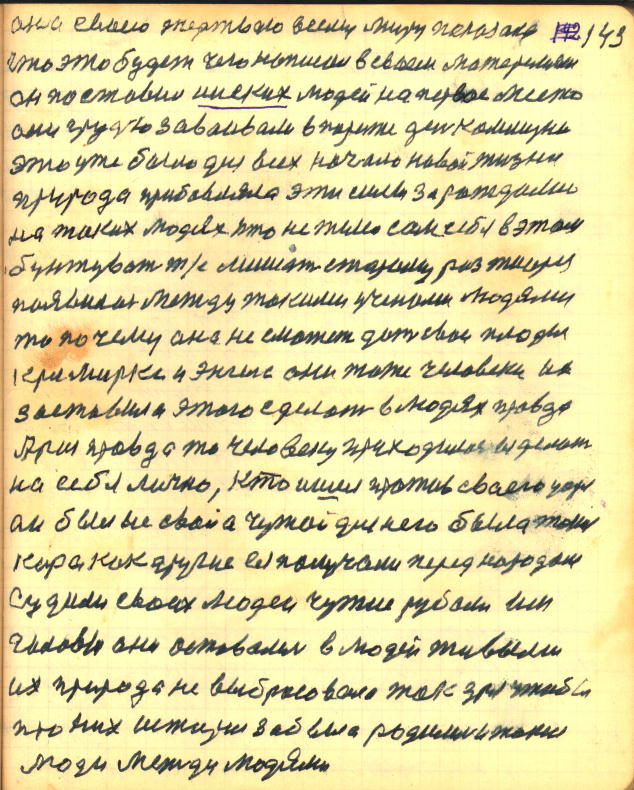 она своею жертвою всему миру показала 142 143
что это будет чего написал в своем материали
он поставил ниских людей на первое место
они грудю завоивали в париже ден комуны
это уже было для всех начало новой жизни
природа прибовляла эти силы зарождалис
на таких людях что не жило сам себя в этом
бунтуват т/е мишат старому раз
появилас между такими учеными людями
то почему она не сможет дат свои плоды
Кр Маркс и Энгелс они тоже человеки их
заставила этого сделат в людях правда
При правда то человеку приходилос делат
на себя лично, Кто ишел против своего царя
он был не свой а чужой для него была такая
кара как другие ея получали перед народом
Судили своих людей чужие рубали им
головы они оставалис в людей живыми
их природа не выбросовала так зря чтобы
про них истории забыла родилис такие
люди между людями